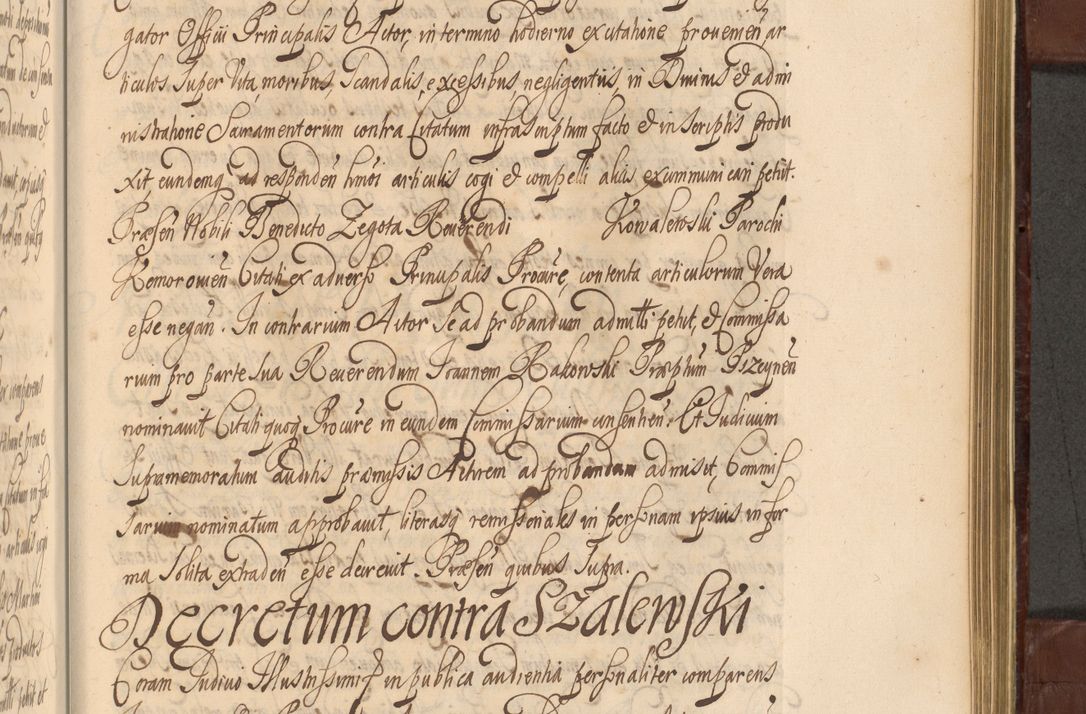 gator Officii Principalis Actor, in termino hodierno ex citatione proveniēn, ar
ticulos, super Vita, moribus, Scandalis, excessibus, negligentiis, in Divinis et admi
nistratione Sacramentorum contra Citatum infrascriptum facto et in scriptis produ
xit, eundemq̃ ad responden̄ hmoi articulis cogi et compelli alias excommunicari petiit.
Præsen̄ Nobili Benedicto Zegota Reverendi Kowalewski Parochi
Komorovien̄ Citati ex adverso Principalis Procure, contenta articulorum Vera
esse negan̄. In contrarium Actor se ad probandum admitti petiit, et Commissa
rium pro parte sua Reverendum Joannem Rakowski Præptum Pszczynen̄
nominavit Citati quoq̃ Procure in eundem Commissarium consentien̄. Et Judicium
supramemoratum auditis præmissis Actorem ad probandam admisit, Commis
sarium nominatum approbavit, literasq̃ remissoriales in personam ipsius in for
ma solita extraden̄ esse decrevit. Præsen̄ quibus supra.
Decretum contra Szalewski
Coram Judicio Illustrissimi in publica audientia personaliter comparens